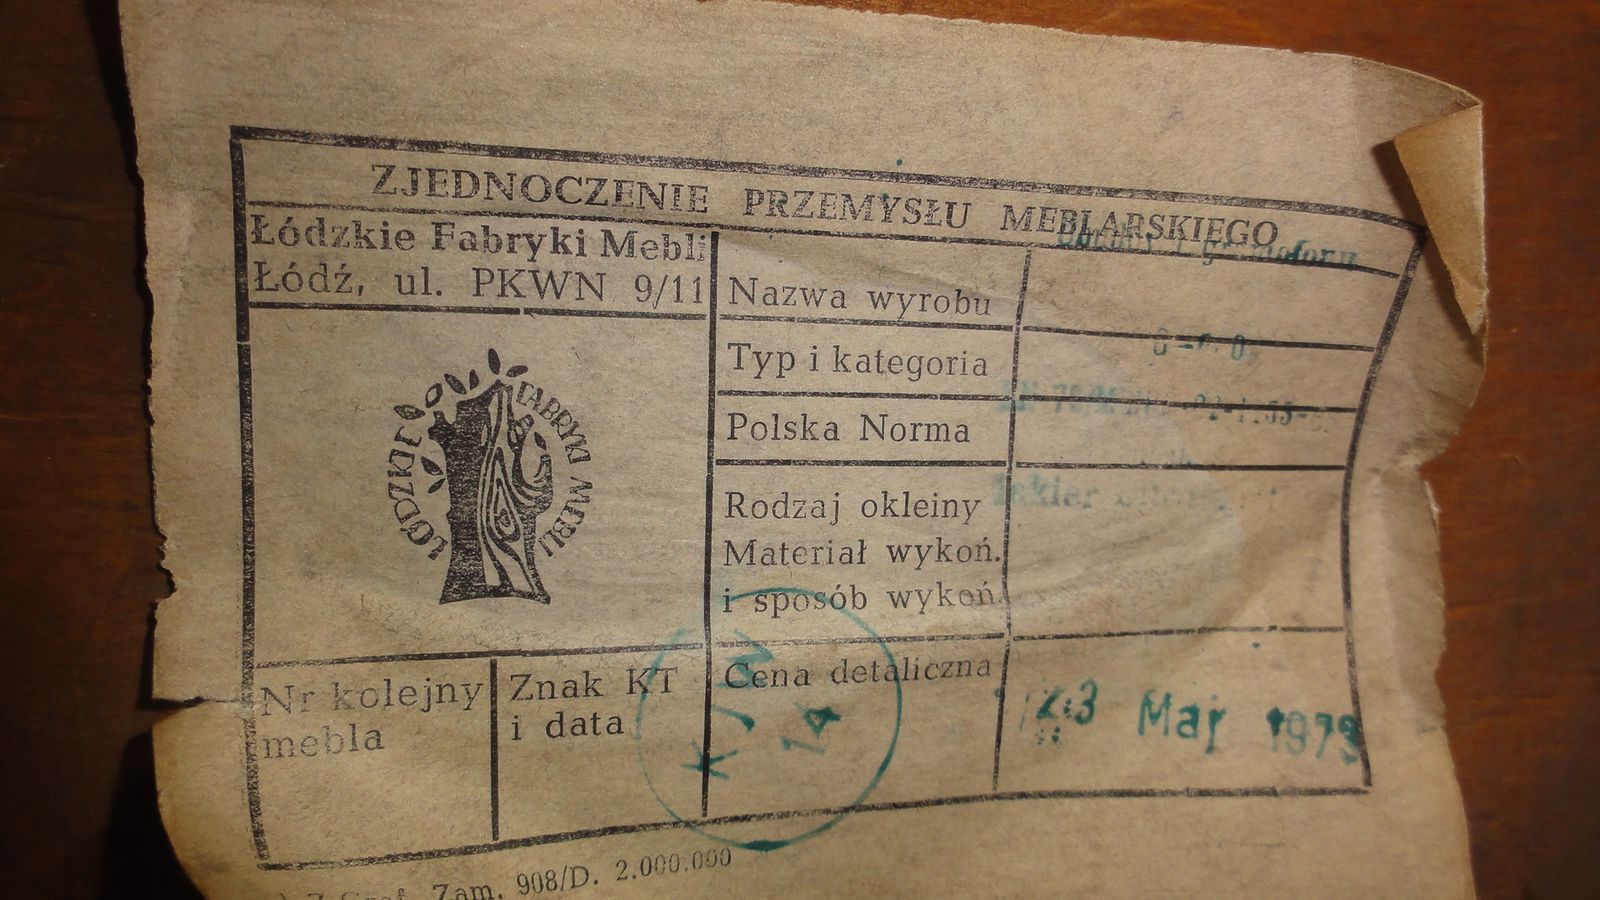 ZJEDNOCZENIE PRZEMYSŁU MEBLARSKIEGO
Łódzkie Fabryki Mebli
Łódź, ul. PKWN 9/11
ŁÓDZKIE FABRYKI MEBLI
Nazwa wyrobu
Typ i kategoria
Polska Norma
Rodzaj okleiny
Materiał wykoń.
i sposób wykoń.
Nr kolejny
mebla
Znak KT
i data
KJW
14
Cena detaliczna
23 Mar 1973
Zam. 908/D. 2.000.000